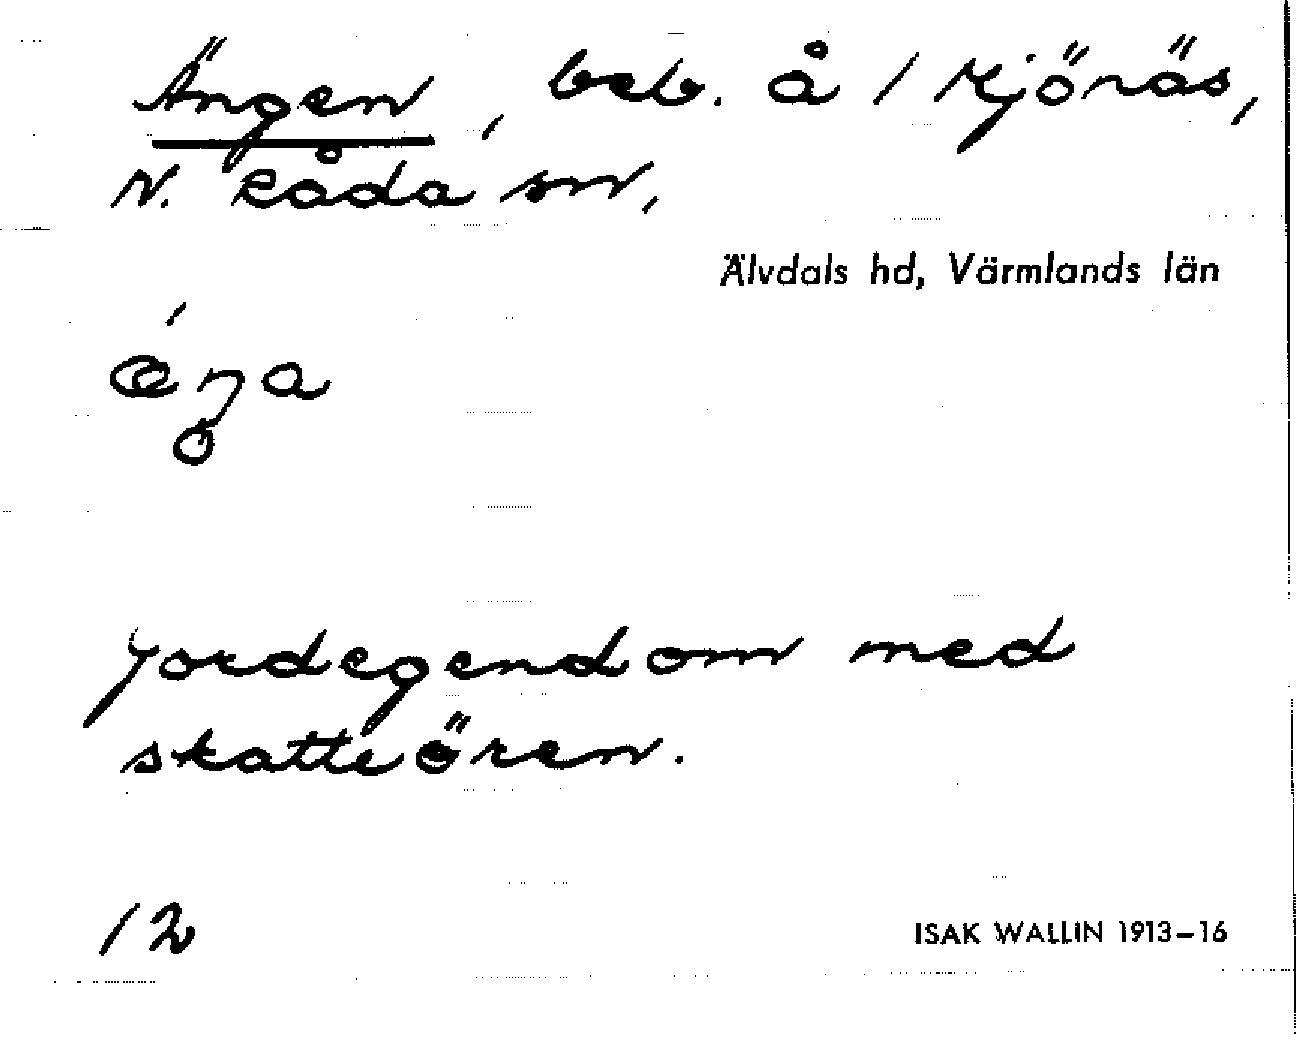 Ängen, beb. å 1 Mjönäs,
N. Råda sn,
Älvdals hd, Värmlands län
jordegendom med
skatteören.
12
ISAK WALLIN 1913-16